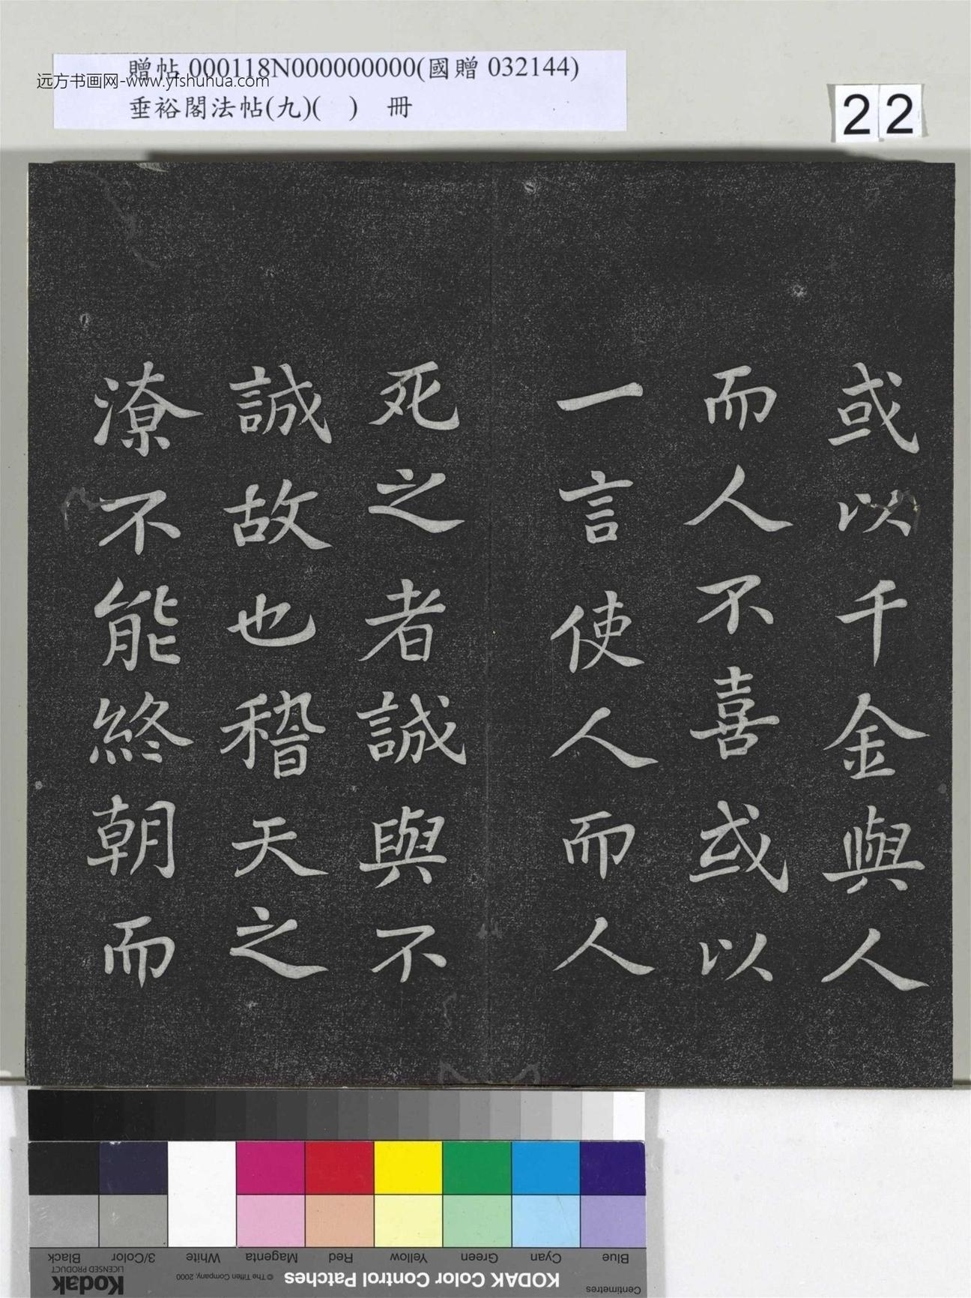 贈帖 000118N000000000(國贈 032144)
远方书画网-www.yishuhua.com
垂裕閣法帖(九)( ) 冊
22
或以千金與人
而人不喜或以
一言使人而人
死之者誠與不
誠故也稽天之
潦不能終朝而
Blue
Cyan
Green
Yellow
Red
Magenta
White
3/Color
Black
Centimetres
KODAK Color Control Patches
© The Tiffen Company, 2000
Kodak
LICENSED PRODUCT